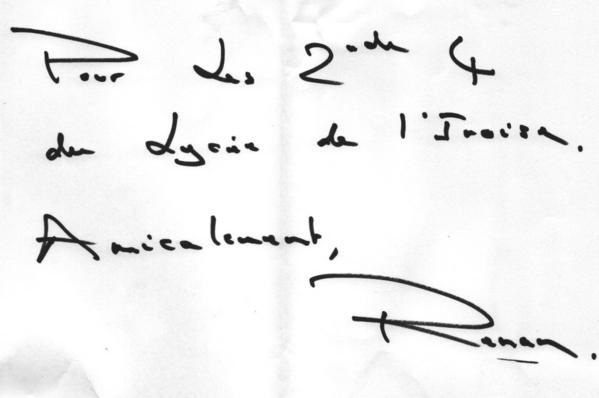 Pour Les 2nde 4
du Lycée de l'Iroise.
Amicalement,
Ronan.